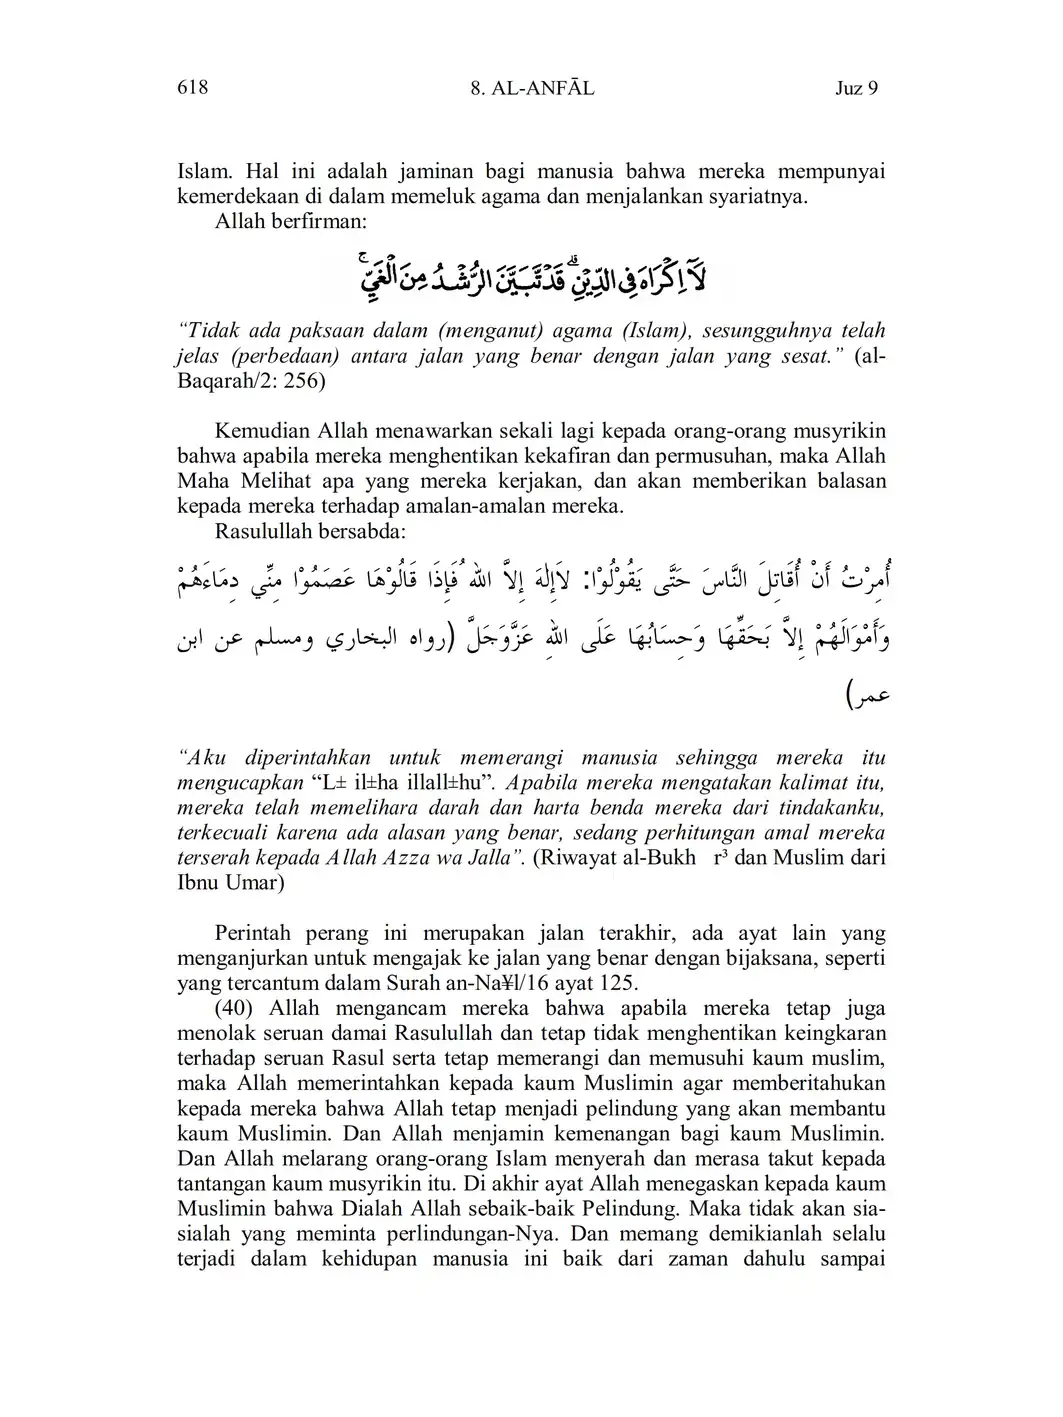 618 8. AL-ANFĀL Juz 9
Islam. Hal ini adalah jaminan bagi manusia bahwa mereka mempunyai
kemerdekaan di dalam memeluk agama dan menjalankan syariatnya.
Allah berfirman:
لَآ اِكْرَاهَ فِى الدِّيْنِۗ قَدْ تَّبَيَّنَ الرُّشْدُ مِنَ الْغَيِّۚ
“Tidak ada paksaan dalam (menganut) agama (Islam), sesungguhnya telah
jelas (perbedaan) antara jalan yang benar dengan jalan yang sesat.” (al-
Baqarah/2: 256)
Kemudian Allah menawarkan sekali lagi kepada orang-orang musyrikin
bahwa apabila mereka menghentikan kekafiran dan permusuhan, maka Allah
Maha Melihat apa yang mereka kerjakan, dan akan memberikan balasan
kepada mereka terhadap amalan-amalan mereka.
Rasulullah bersabda:
أُمِرْتُ أَنْ أُقَاتِلَ النَّاسَ حَتَّى يَقُوْلُوْا: لاَإِلٰهَ إِلاَّ اللهُ فَإِذَا قَالُوْهَا عَصَمُوْا مِنِّي دِمَاءَهُمْ
وَأَمْوَالَهُمْ إِلاَّ بِحَقِّهَا وَحِسَابُهَا عَلَى اللهِ عَزَّوَجَلَّ (رواه البخاري ومسلم عن ابن
عمر)
“Aku diperintahkan untuk memerangi manusia sehingga mereka itu
mengucapkan “L± il±ha illall±hu”. Apabila mereka mengatakan kalimat itu,
mereka telah memelihara darah dan harta benda mereka dari tindakanku,
terkecuali karena ada alasan yang benar, sedang perhitungan amal mereka
terserah kepada Allah Azza wa Jalla”. (Riwayat al-Bukh r³ dan Muslim dari
Ibnu Umar)
Perintah perang ini merupakan jalan terakhir, ada ayat lain yang
menganjurkan untuk mengajak ke jalan yang benar dengan bijaksana, seperti
yang tercantum dalam Surah an-Na¥l/16 ayat 125.
(40) Allah mengancam mereka bahwa apabila mereka tetap juga
menolak seruan damai Rasulullah dan tetap tidak menghentikan keingkaran
terhadap seruan Rasul serta tetap memerangi dan memusuhi kaum muslim,
maka Allah memerintahkan kepada kaum Muslimin agar memberitahukan
kepada mereka bahwa Allah tetap menjadi pelindung yang akan membantu
kaum Muslimin. Dan Allah menjamin kemenangan bagi kaum Muslimin.
Dan Allah melarang orang-orang Islam menyerah dan merasa takut kepada
tantangan kaum musyrikin itu. Di akhir ayat Allah menegaskan kepada kaum
Muslimin bahwa Dialah Allah sebaik-baik Pelindung. Maka tidak akan sia-
sialah yang meminta perlindungan-Nya. Dan memang demikianlah selalu
terjadi dalam kehidupan manusia ini baik dari zaman dahulu sampai